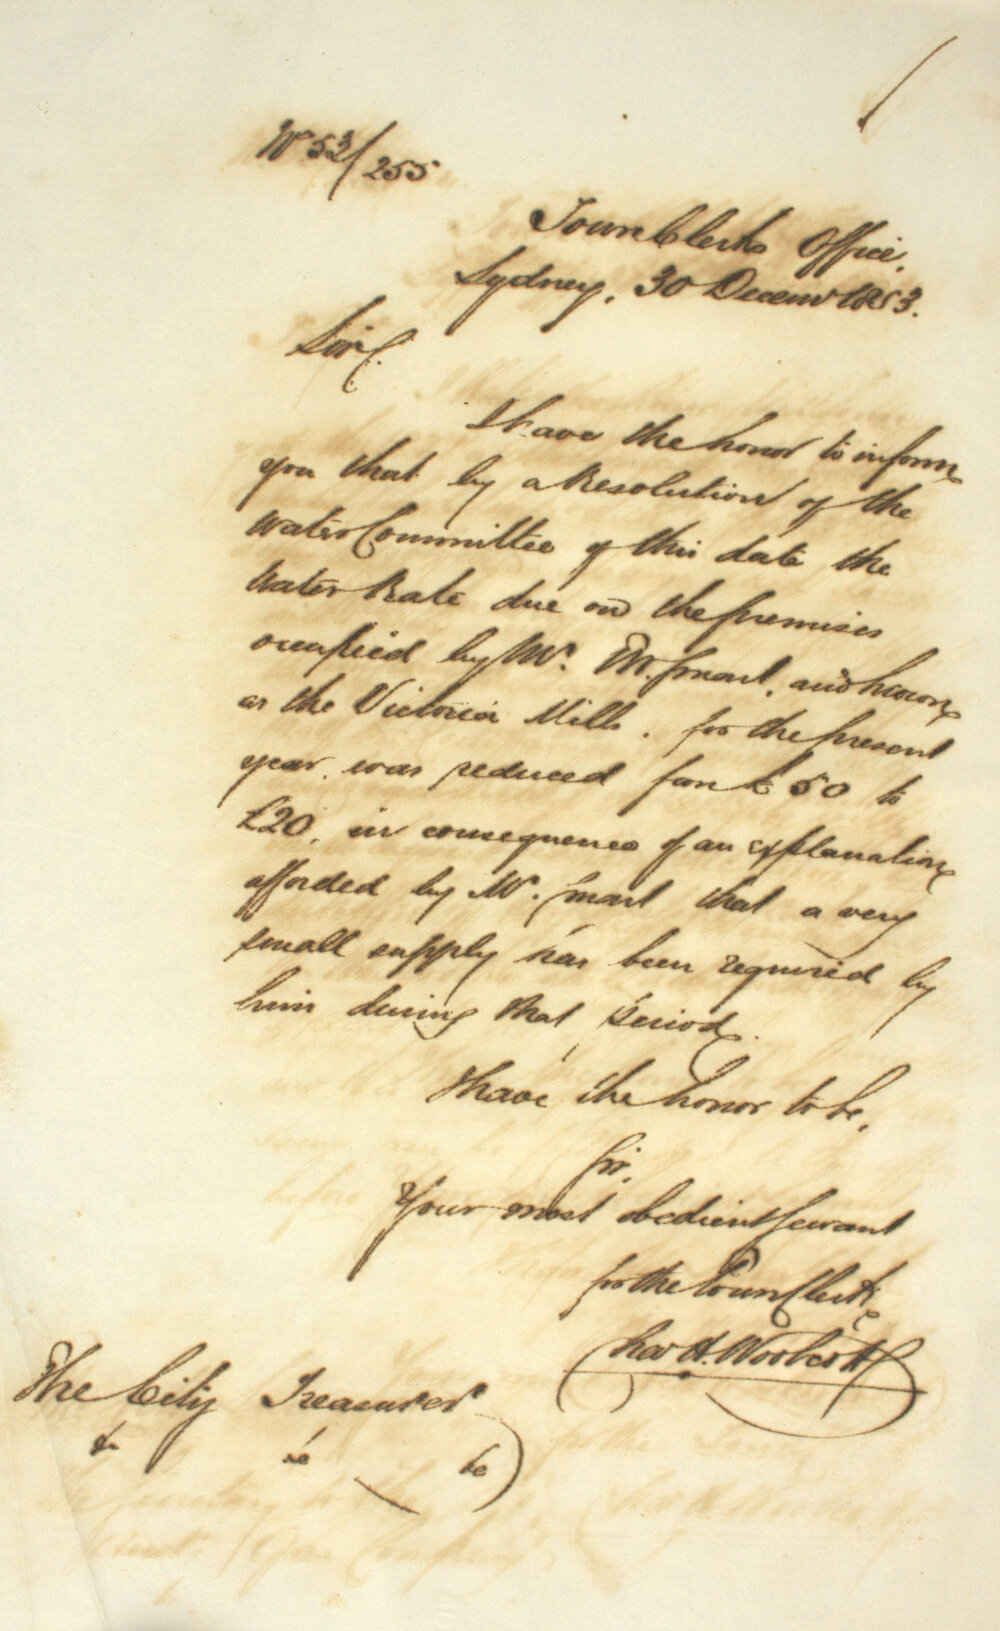 No 53/255
Town Clerks Office,
Sydney, 30 Decemr 1853.
Sir,
I have the honor to inform
you that by a Resolution of the
Water Committee of this date the
Water Rate due on the premises
occupied by Mr. T. W. Smart, and known
as the Victoria Mills, for the present
year, was reduced from £50 to
£20, in consequence of an explanation
afforded by Mr. Smart that a very
small supply has been required by
him during that period.
I have the honor to be,
Sir,
Your most obedient Servant
for the Town Clerk,
Chas H. Woolcott
The City Treasurer
&c &c &c